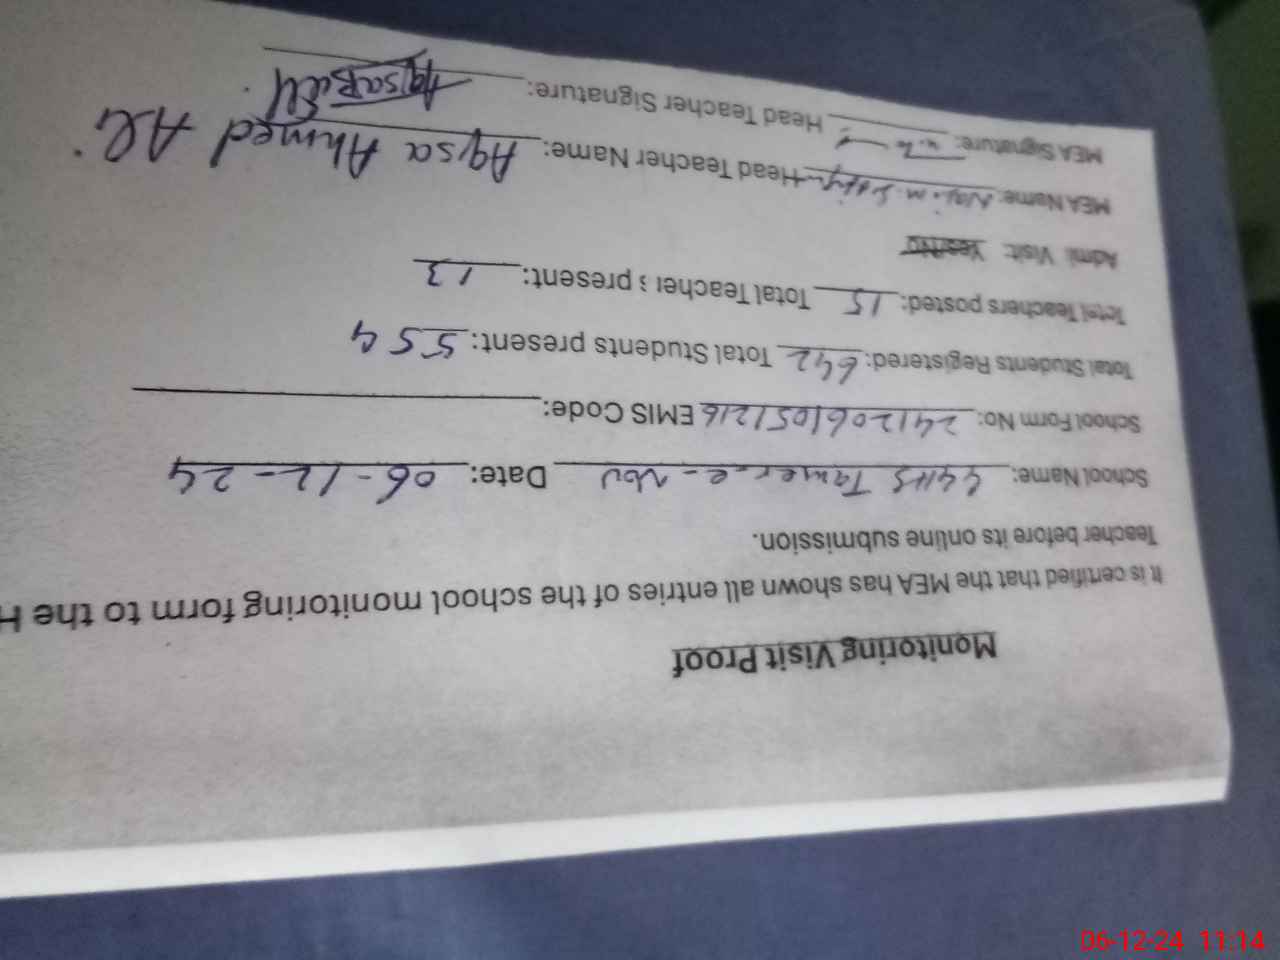 Monitoring Visit Proof
It is certified that the MEA has shown all entries of the school monitoring form to the H
Teacher before its online submission.
School Name: GGHS Tameer-e-Nou Date: 06-12-24
School Form No: 2412061051216 EMIS Code:
Total Students Registered: 642 Total Students present: 554
Total Teachers posted: 15 Total Teachers present: 13
Admi: Visit: Yes/No
MEA Name: Head Teacher Name: Aqsa Ahmed Ali
MEA Signature: Head Teacher Signature:
06-12-24 11:14